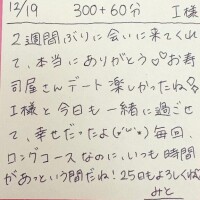 12/19 300+60分 I様
2週間ぶりに会いに来てくれ
て、本当にありがとう♡お寿
司屋さんデート楽しかったね
I様と今日も一緒に過ごせ
て、幸せだったよ(*´ω`*)毎回、
ロングコースなのに、いつも時間
があっという間だね!25日もよろしくね
みと